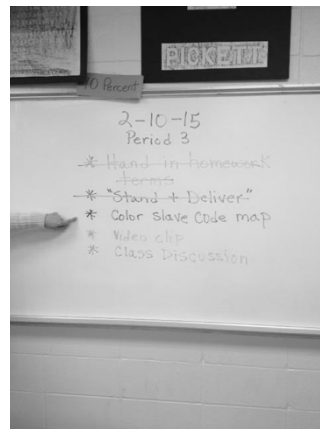 PICKETT
70 Percent
2-10-15
Period 3
* Hand in homework
terms
* "Stand + Deliver"
* Color slave code map
* Video clip
* Class Discussion